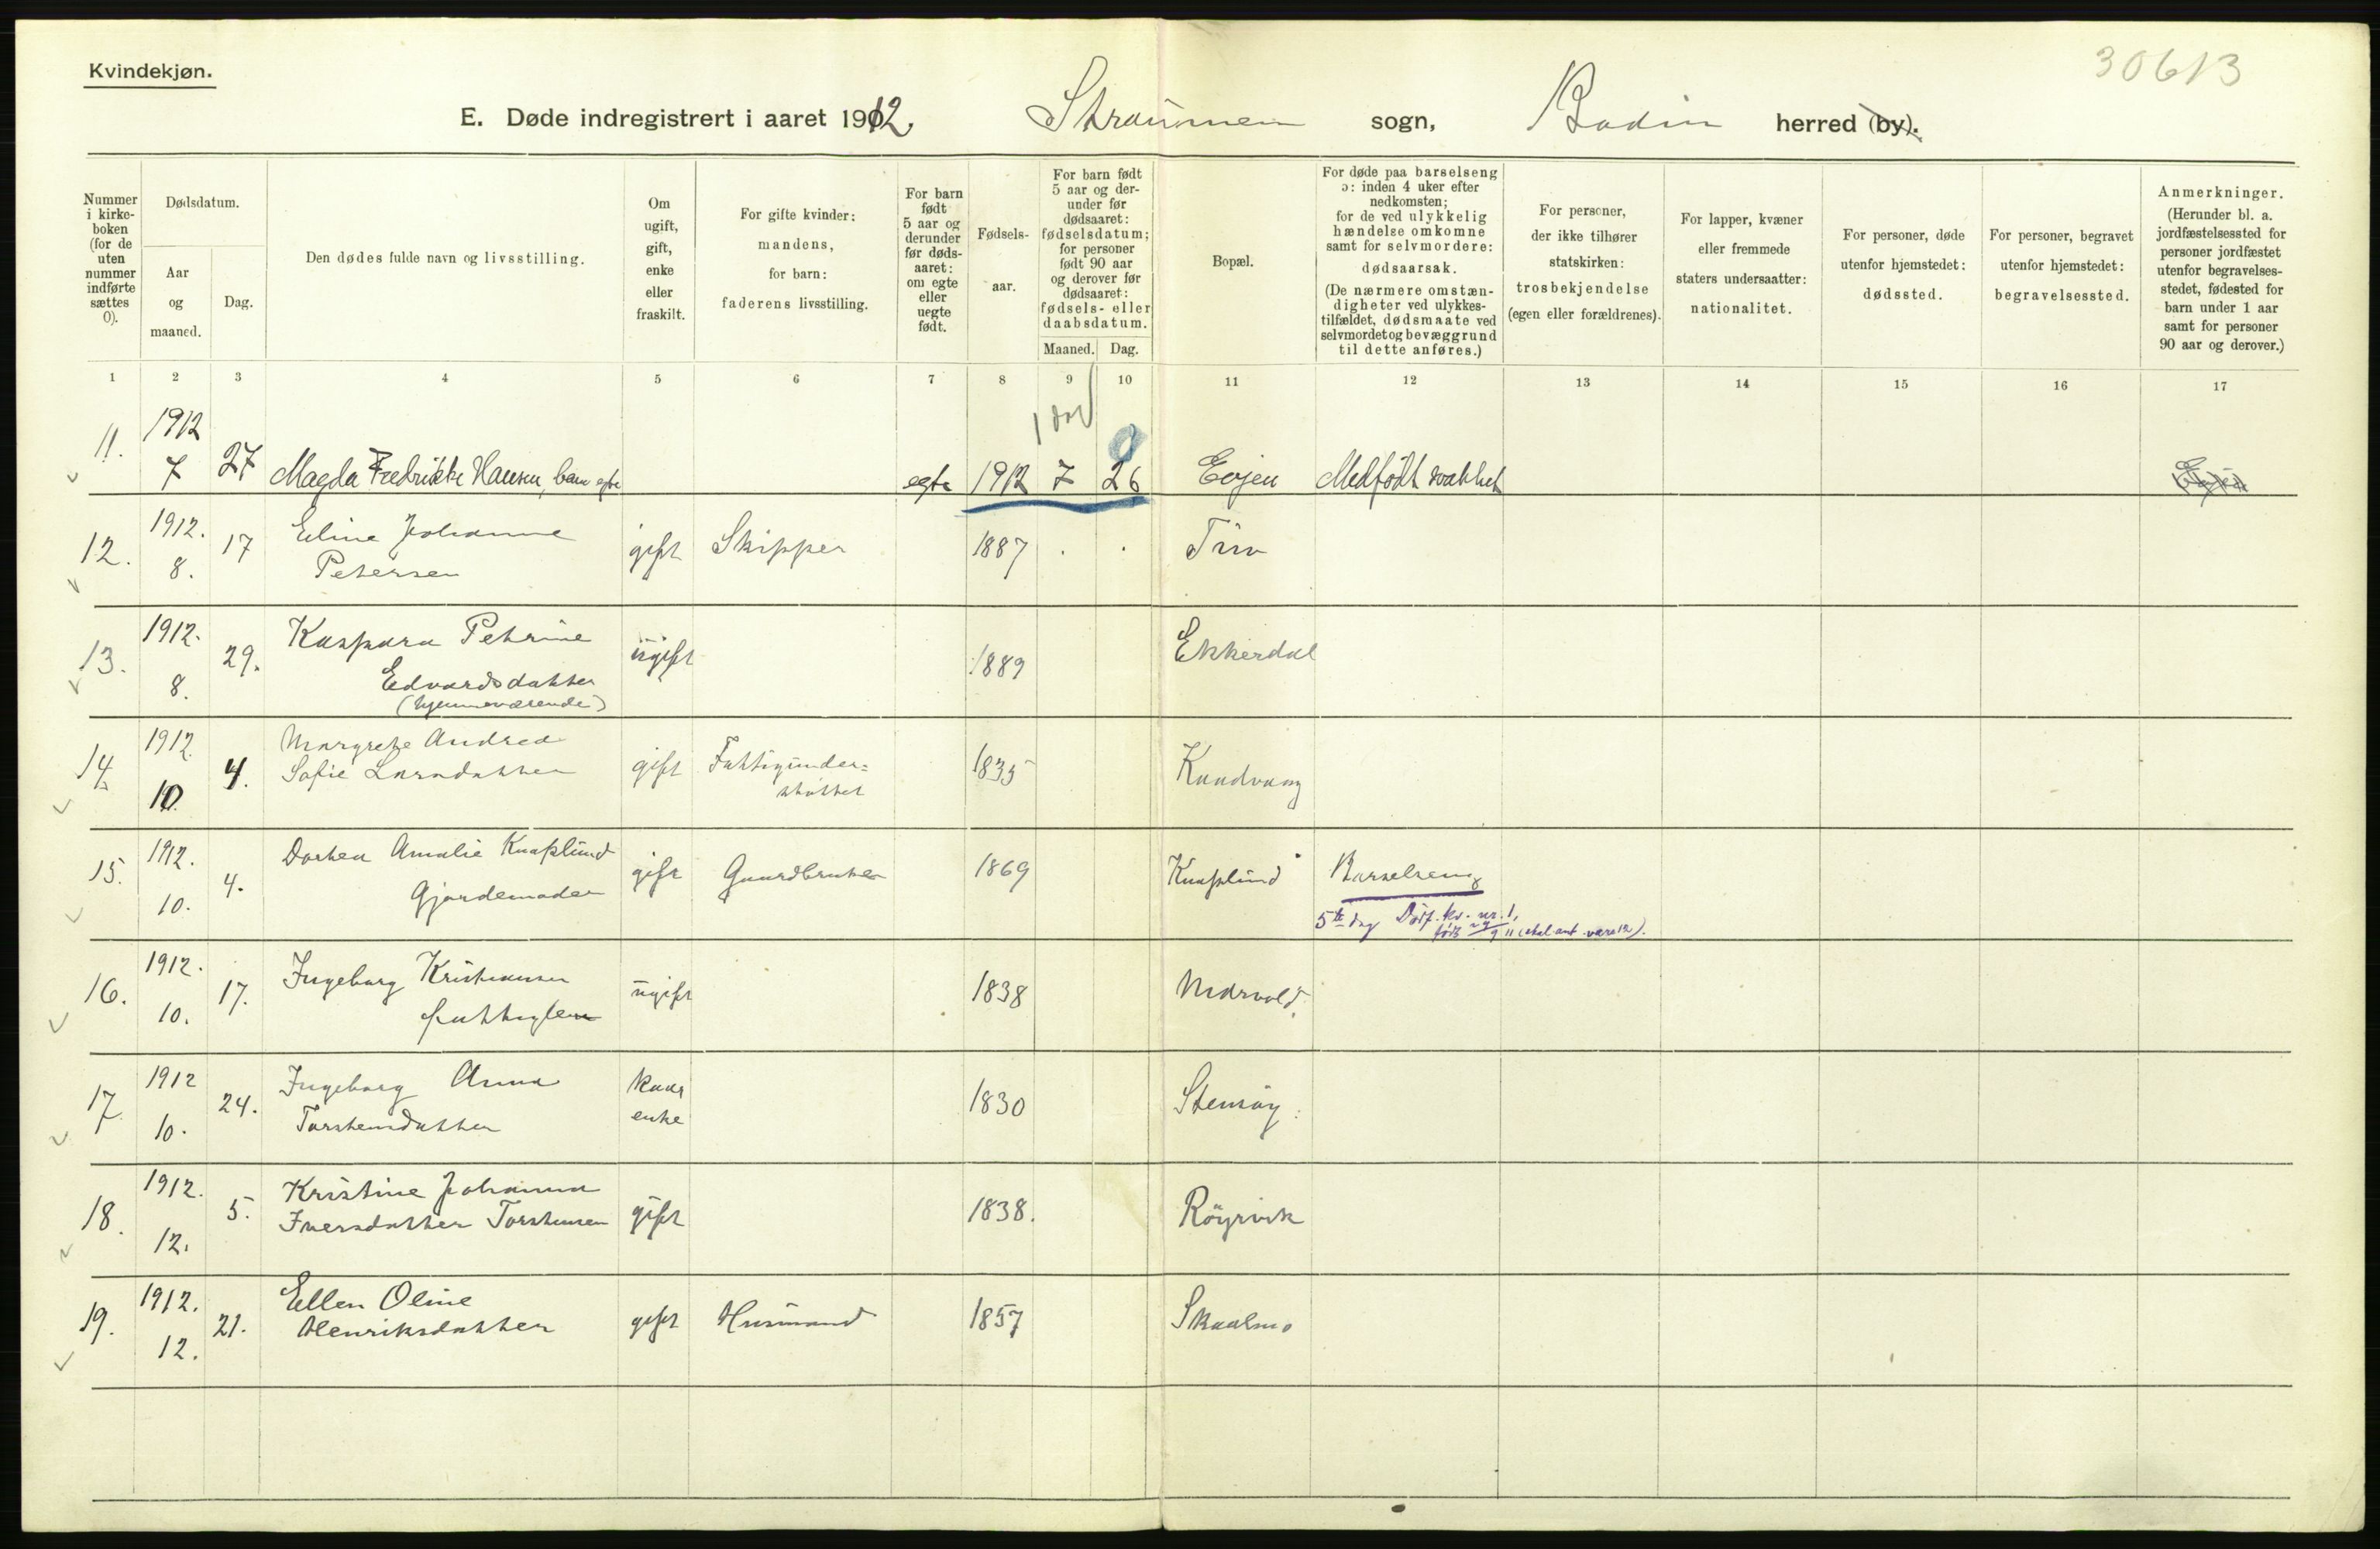 Kvindekjøn.
30613
E. Døde indregistrert i aaret 1912. Straumen sogn, Bodin herred (by).
Nummer i kirkeboken (for de uten nummer indførte sættes 0).
Dødsdatum.
Aar og maaned.
Dag.
Den dødes fulde navn og livsstilling.
Om ugift, gift, enke eller fraskilt.
For gifte kvinder: mandens, for barn: faderens livsstilling.
For barn født 5 aar og derunder før dødsaaret: om egte eller uegte født.
Fødselsaar.
For barn født 5 aar og derunder før dødsaaret: fødselsdatum; for personer født 90 aar og derover før dødsaaret: fødsels- eller daabsdatum.
Maaned. Dag.
Bopæl.
For døde paa barselseng ɔ: inden 4 uker efter nedkomsten; for de ved ulykkelig hændelse omkomne samt for selvmordere: dødsaarsak. (De nærmere omstændigheter ved ulykkestilfældet, dødsmaate ved selvmordet og bevæggrund til dette anføres.)
For personer, der ikke tilhører statskirken: trosbekjendelse (egen eller forældrenes).
For lapper, kvæner eller fremmede staters undersaatter: nationalitet.
For personer, døde utenfor hjemstedet: dødssted.
For personer, begravet utenfor hjemstedet: begravelsessted.
Anmerkninger. (Herunder bl. a. jordfæstelsessted for personer jordfæstet utenfor begravelsesstedet, fødested for barn under 1 aar samt for personer 90 aar og derover.)
1 2 3 4 5 6 7 8 9 10 11 12 13 14 15 16 17
11. 1912 7 27 Magda Fredrikke Hansen, barn egte egte 1912 7 26 Evjen Medfødt svakhet
1 dag 0
12. 1912. 8. 17 Eline Johanne Petersen gift Skipper 1887 . . Tuv
13. 1912. 8. 29. Kaspara Petrine Edvardsdatter (hjemmeværende) ugift 1889 Ekkerdal
14. 1912. 10. 4. Margrete Andrea Sofie Larsdatter gift Fattigunder=støttet 1835 Kvadvaag
15. 1912. 10. 4. Dortea Amalie Knaplund Gjordemoder gift Gaardbruker 1869 Knaplund Barselseng
5te dag Dødf. kv. nr. 1, født 9 11 (skal ant. være 12).
16. 1912. 10. 17. Ingeborg Kristiansen fattiglem ugift 1838 Mørvold
17. 1912 10. 24. Ingeborg Anna Torstensdatter kaar enke 1830 Stensøy
18. 1912. 12. 5. Kristine Johanna Iversdatter Torstensen gift 1838. Røyrvik
19. 1912. 12. 21. Ellen Oline Henriksdatter gift Husmand 1857 Skaalmo